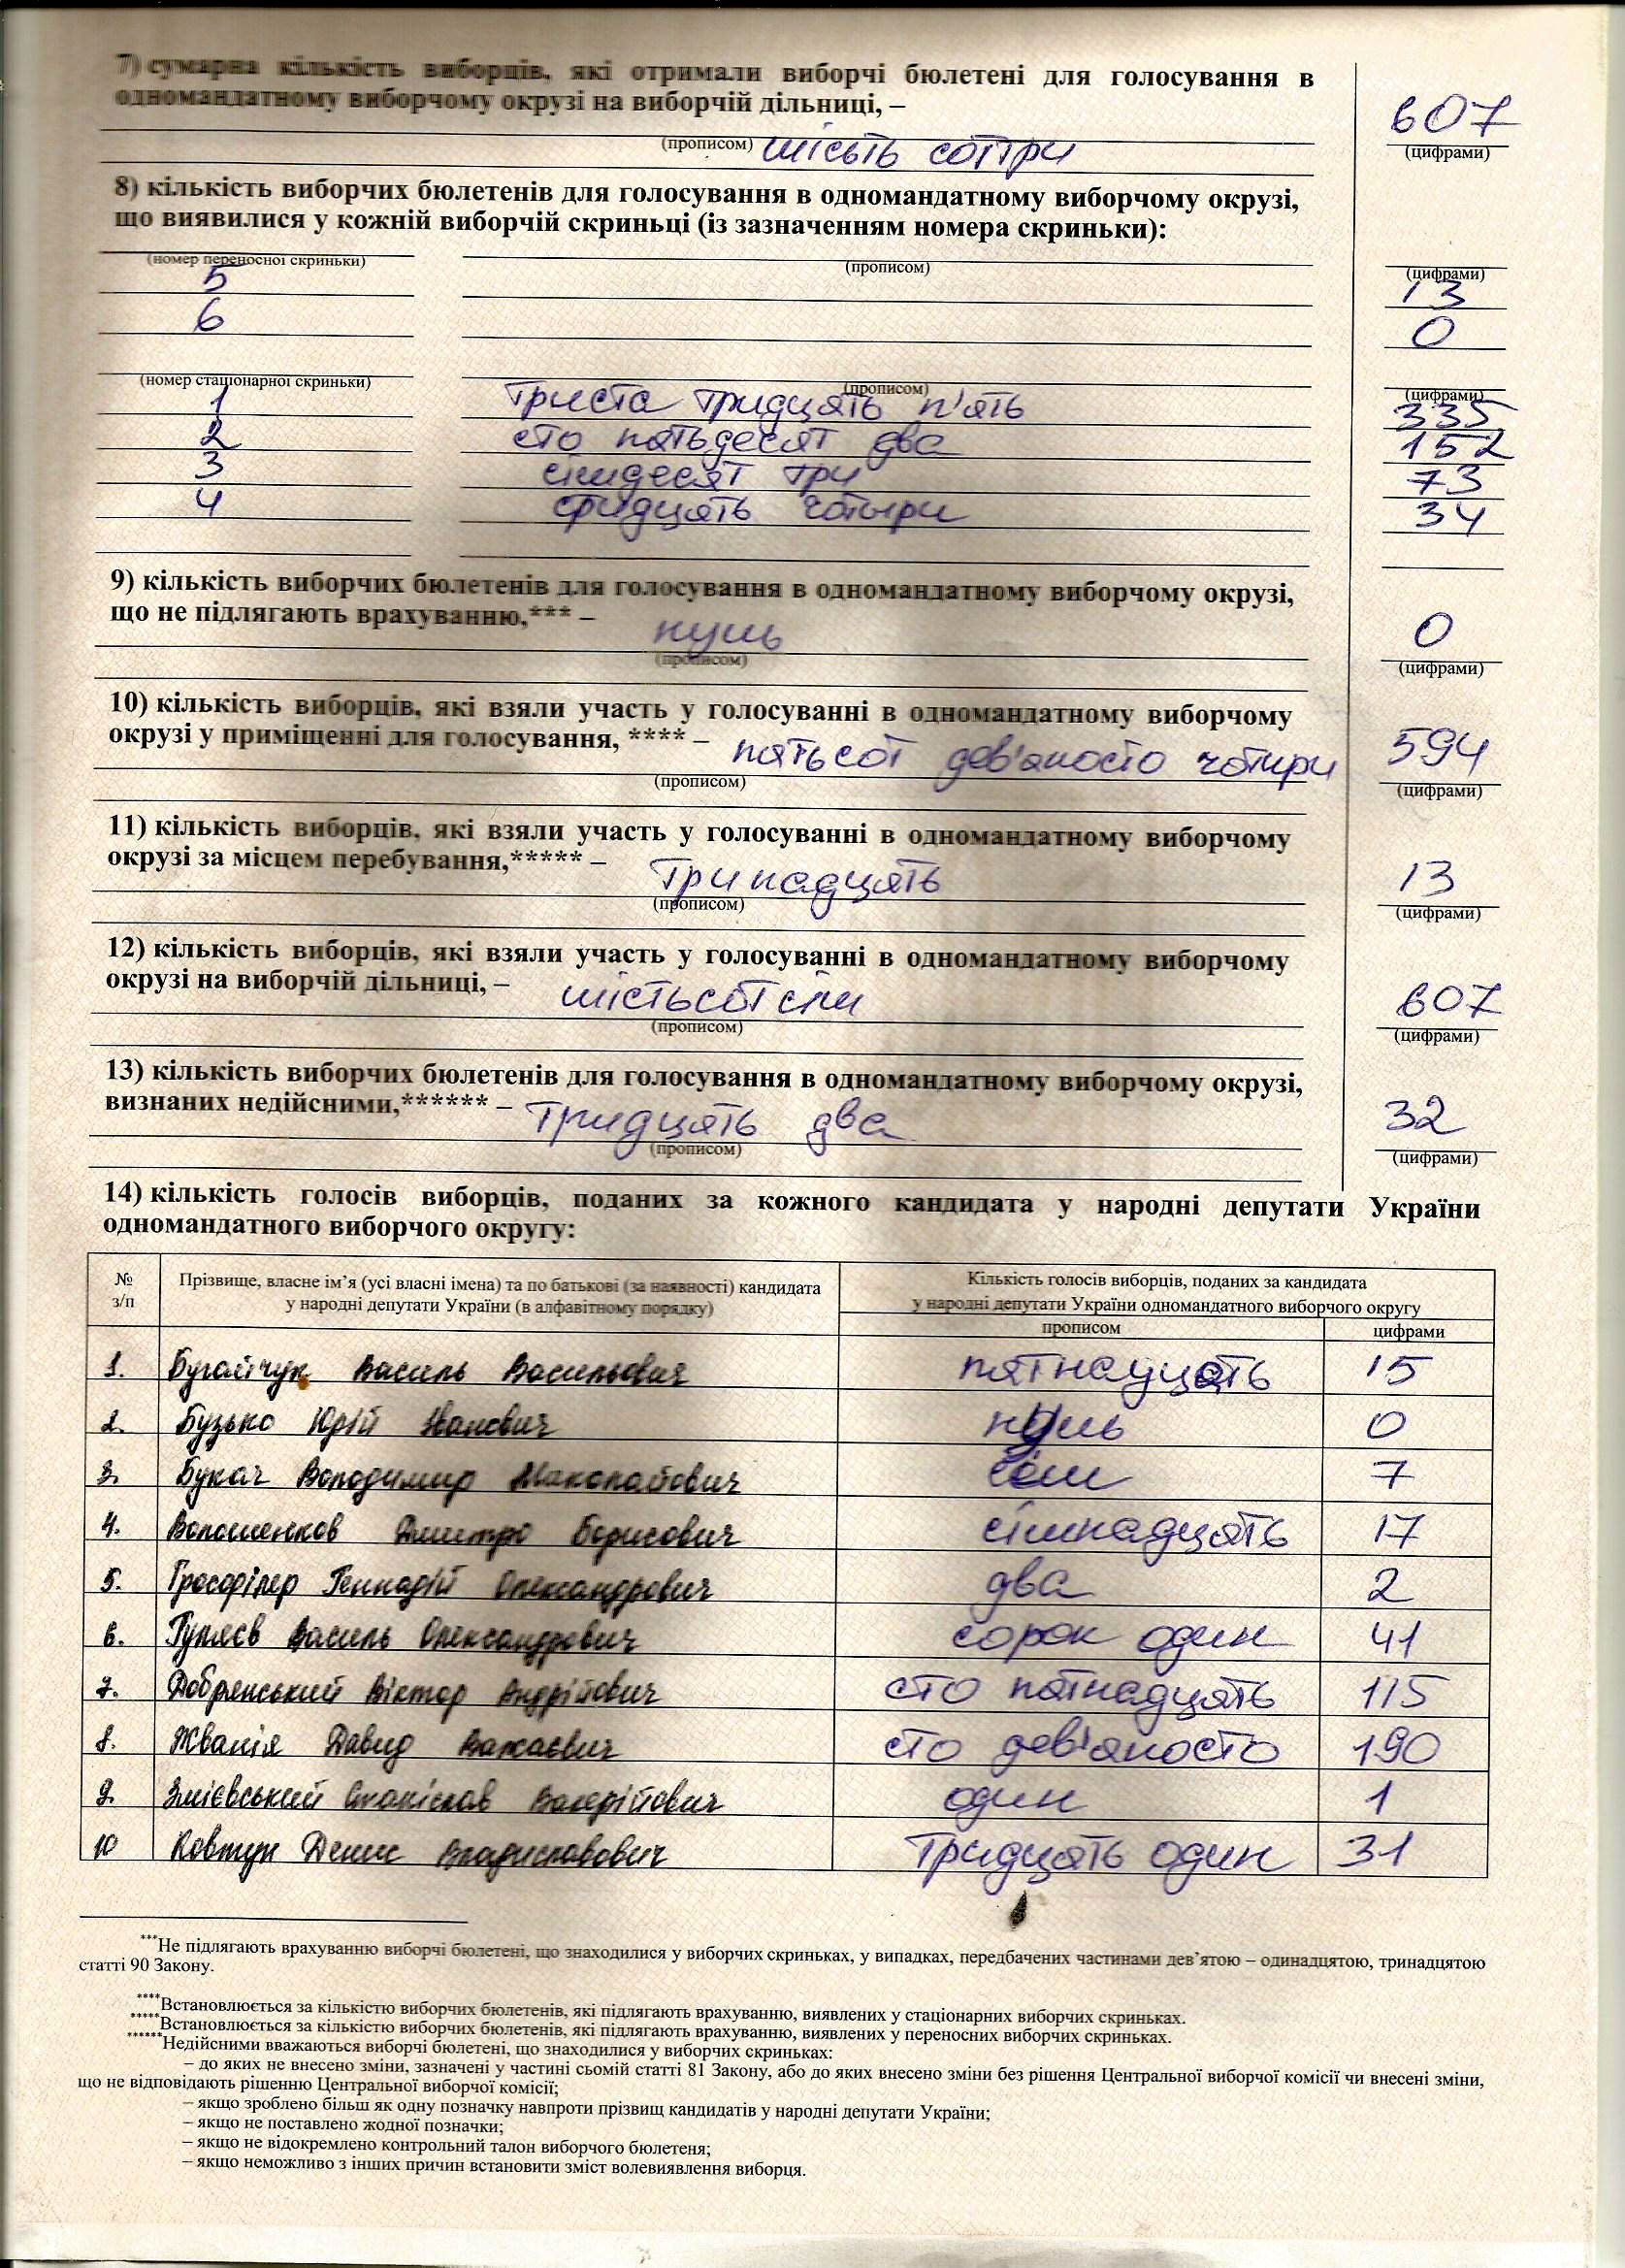 7) сумарна кількість виборців, які отримали виборчі бюлетені для голосування в
одномандатному виборчому окрузі на виборчій дільниці, –
607
(прописом) шість сотгри
(цифрами)
8) кількість виборчих бюлетенів для голосування в одномандатному виборчому окрузі,
що виявилися у кожній виборчій скриньці (із зазначенням номера скриньки):
(номер переносної скриньки) (прописом) (цифрами)
5 13
6 0
(номер стаціонарної скриньки) (прописом) (цифрами)
1 триста тридцять п'ять 335
2 сто пятьдесят два 152
3 сімдесят три 73
4 тридцять чотыри 34
9) кількість виборчих бюлетенів для голосування в одномандатному виборчому окрузі,
що не підлягають врахуванню,*** – нуль 0
(прописом) (цифрами)
10) кількість виборців, які взяли участь у голосуванні в одномандатному виборчому
окрузі у приміщенні для голосування, **** – пятьсот дев'яносто чотири 594
(прописом) (цифрами)
11) кількість виборців, які взяли участь у голосуванні в одномандатному виборчому
окрузі за місцем перебування,***** – Тринадцять 13
(прописом) (цифрами)
12) кількість виборців, які взяли участь у голосуванні в одномандатному виборчому
окрузі на виборчій дільниці, – шістьсот сім 607
(прописом) (цифрами)
13) кількість виборчих бюлетенів для голосування в одномандатному виборчому окрузі,
визнаних недійсними,****** – Тридцять два 32
(прописом) (цифрами)
14) кількість голосів виборців, поданих за кожного кандидата у народні депутати України
одномандатного виборчого округу:
№ з/п
Прізвище, власне ім’я (усі власні імена) та по батькові (за наявності) кандидата
у народні депутати України (в алфавітному порядку)
Кількість голосів виборців, поданих за кандидата
у народні депутати України одномандатного виборчого округу
прописом цифрами
1. Бугайчук Василь Васильович пятнацять 15
2. Бузько Юрій Іванович нуль 0
3. Букач Володимир Миколайович сім 7
4. Волошенков Дмитро Борисович сімнадцять 17
5. Гросфілер Геннадій Олександрович два 2
6. Гуляєв Василь Олександрович сорок один 41
7. Добрянський Віктор Андрійович сто пятнадцять 115
8. Жванія Давид Важаєвич сто дев'яносто 190
9. Змієвський Станіслав Валерійович один 1
10 Ковтун Денис Владиславович Тридцять один 31
***Не підлягають врахуванню виборчі бюлетені, що знаходилися у виборчих скриньках, у випадках, передбачених частинами дев’ятою – одинадцятою, тринадцятою
статті 90 Закону.
****Встановлюється за кількістю виборчих бюлетенів, які підлягають врахуванню, виявлених у стаціонарних виборчих скриньках.
*****Встановлюється за кількістю виборчих бюлетенів, які підлягають врахуванню, виявлених у переносних виборчих скриньках.
******Недійсними вважаються виборчі бюлетені, що знаходилися у виборчих скриньках:
– до яких не внесено зміни, зазначені у частині сьомій статті 81 Закону, або до яких внесено зміни без рішення Центральної виборчої комісії чи внесені зміни,
що не відповідають рішенню Центральної виборчої комісії;
– якщо зроблено більш як одну позначку навпроти прізвищ кандидатів у народні депутати України;
– якщо не поставлено жодної позначки;
– якщо не відокремлено контрольний талон виборчого бюлетеня;
– якщо неможливо з інших причин встановити зміст волевиявлення виборця.